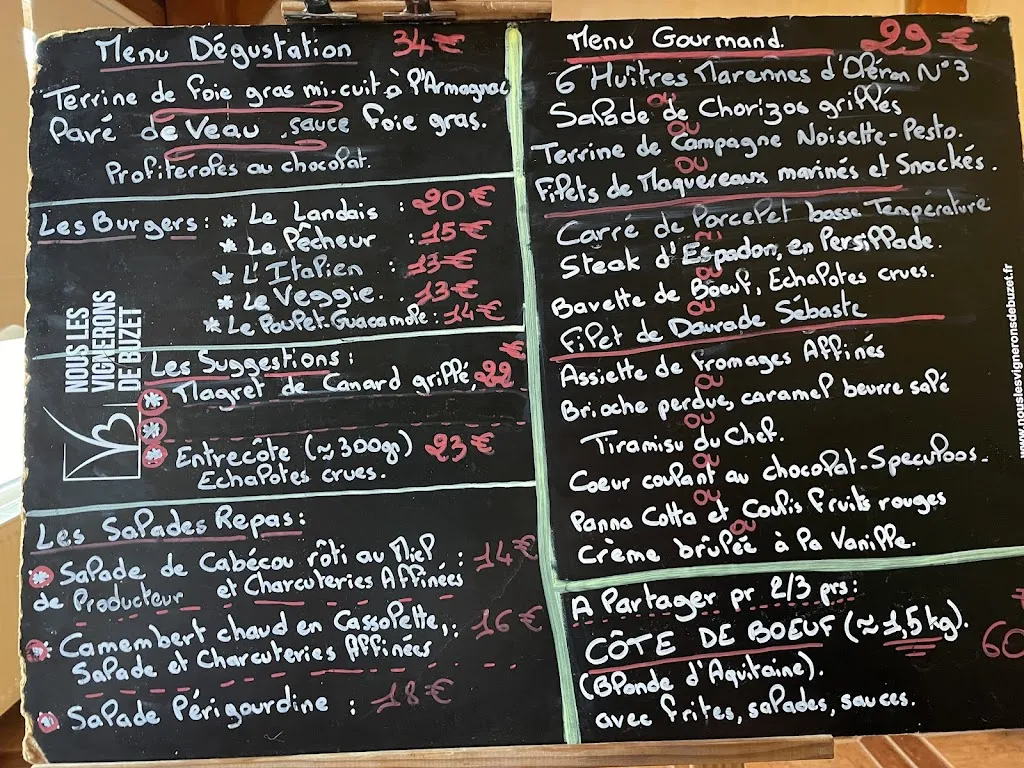 Menu Dégustation 34€
Terrine de foie gras mi-cuit à l'Armagnac
Pavé de Veau, sauce foie gras.
Profiteroles au chocolat.
Les Burgers : * Le Landais : 20€
* Le Pêcheur : 15€
* L'Italien : 13€
* Le Veggie. . 13€
* Le Poulet-Guacamole : 14€
NOUS LES
VIGNERONS
DE BUZET
Les Suggestions :
* Magret de Canard grillé, 22€
*
* Entrecôte (≈300gr) 23€
Echalotes crues.
Les Salades Repas :
* Salade de Cabécou rôti au Miel : 14€
de Producteur et Charcuteries Affinées
* Camembert chaud en Cassolette, : 16€
Salade et Charcuteries Affinées
* Salade Périgourdine : 18€
Menu Gourmand. 29€
6 Huîtres Marennes d'Oléron N°3
ou
Salade de Chorizos grillés
ou
Terrine de Campagne Noisette-Pesto.
ou
Filets de Maquereaux marinés et Snackés.
Carré de Porcelet basse Température
Steak d'Espadon, en Persillade.
ou
Bavette de Boeuf, Echalotes crues.
ou
Filet de Daurade Sébaste
Assiette de fromages Affinés
ou
Brioche perdue, caramel beurre salé
ou
Tiramisu du Chef.
ou
Coeur coulant au chocolat-Speculoos-
ou
Panna Cotta et Coulis fruits rouges
ou
Crème brûlée à la Vanille.
A Partager pr 2/3 prs :
CÔTE DE BOEUF (≈1,5kg). 60
(Blonde d'Aquitaine).
avec frites, salades, sauces.
www.nouslesvigneronsdebuzet.fr